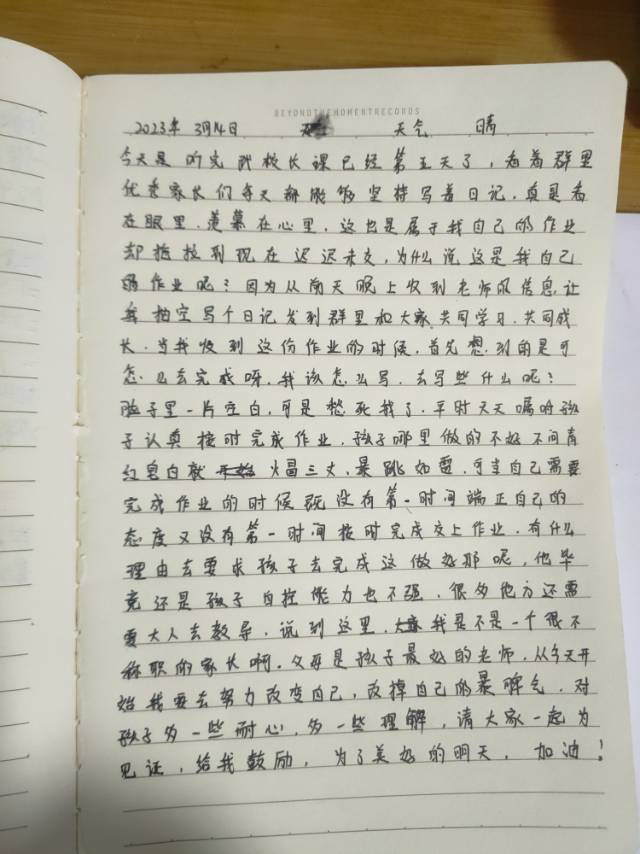 BEYONDTHEMOMENTRECORDS
2023年 3月14日 天气 晴
今天是听完我校长课已经第五天了，看着群里
优秀家长们每天都能够坚持写着日记，真是看
在眼里，羡慕在心里，这也是属于我自己的作业
却拖拉到现在迟迟未交，为什么说这是我自己
的作业呢？因为从前天晚上收到老师的信息，让
我抽空写个日记发到群里和大家共同学习，共同成
长，当我收到这份作业的时候，首先想到的是可
怎么去完成呀，我该怎么写，去写些什么呢？
脑子里一片空白，可是愁死我了，平时天天嘱咐孩
子认真按时完成作业，孩子哪里做的不好不问青
红皂白就 火冒三丈，暴跳如雷，可当自己需要
完成作业的时候既没有第一时间端正自己的
态度又没有第一时间按时完成交上作业，有什么
理由去要求孩子去完成这做好那呢，他毕
竟还是孩子自控能力也不强，很多地方还需
要大人去教导，说到这里，我是不是一个很不
称职的家长啊，父母是孩子最好的老师，从今天开
始我要去努力改变自己，改掉自己的暴脾气，对
孩子多一些耐心，多一些理解，请大家一起为
见证，给我鼓励，为了美好的明天，加油！